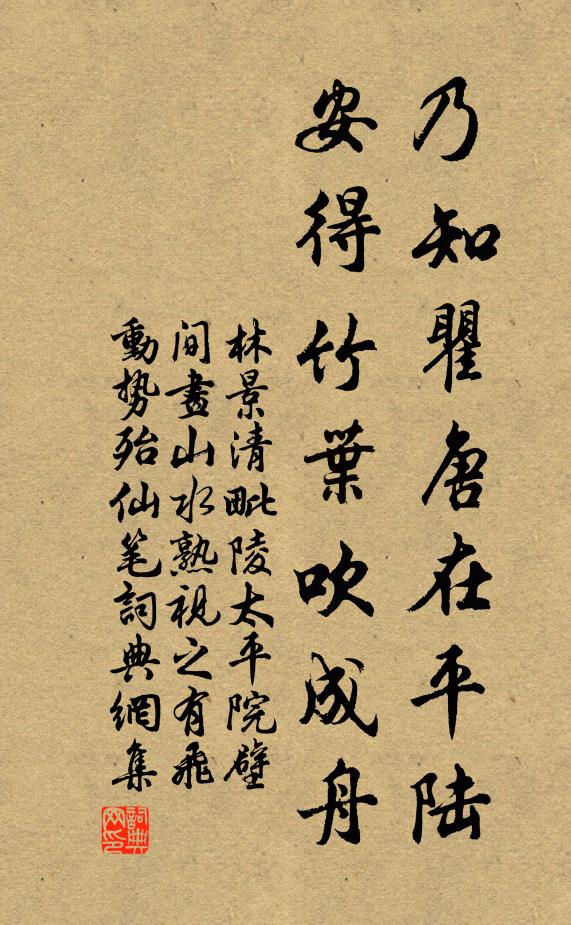 乃知瞿唐在平陆
安得竹葉吹成舟
林景清毗陵太平院壁
间畫山水熟視之有飛
動势殆仙笔詞典網集
詞典网印